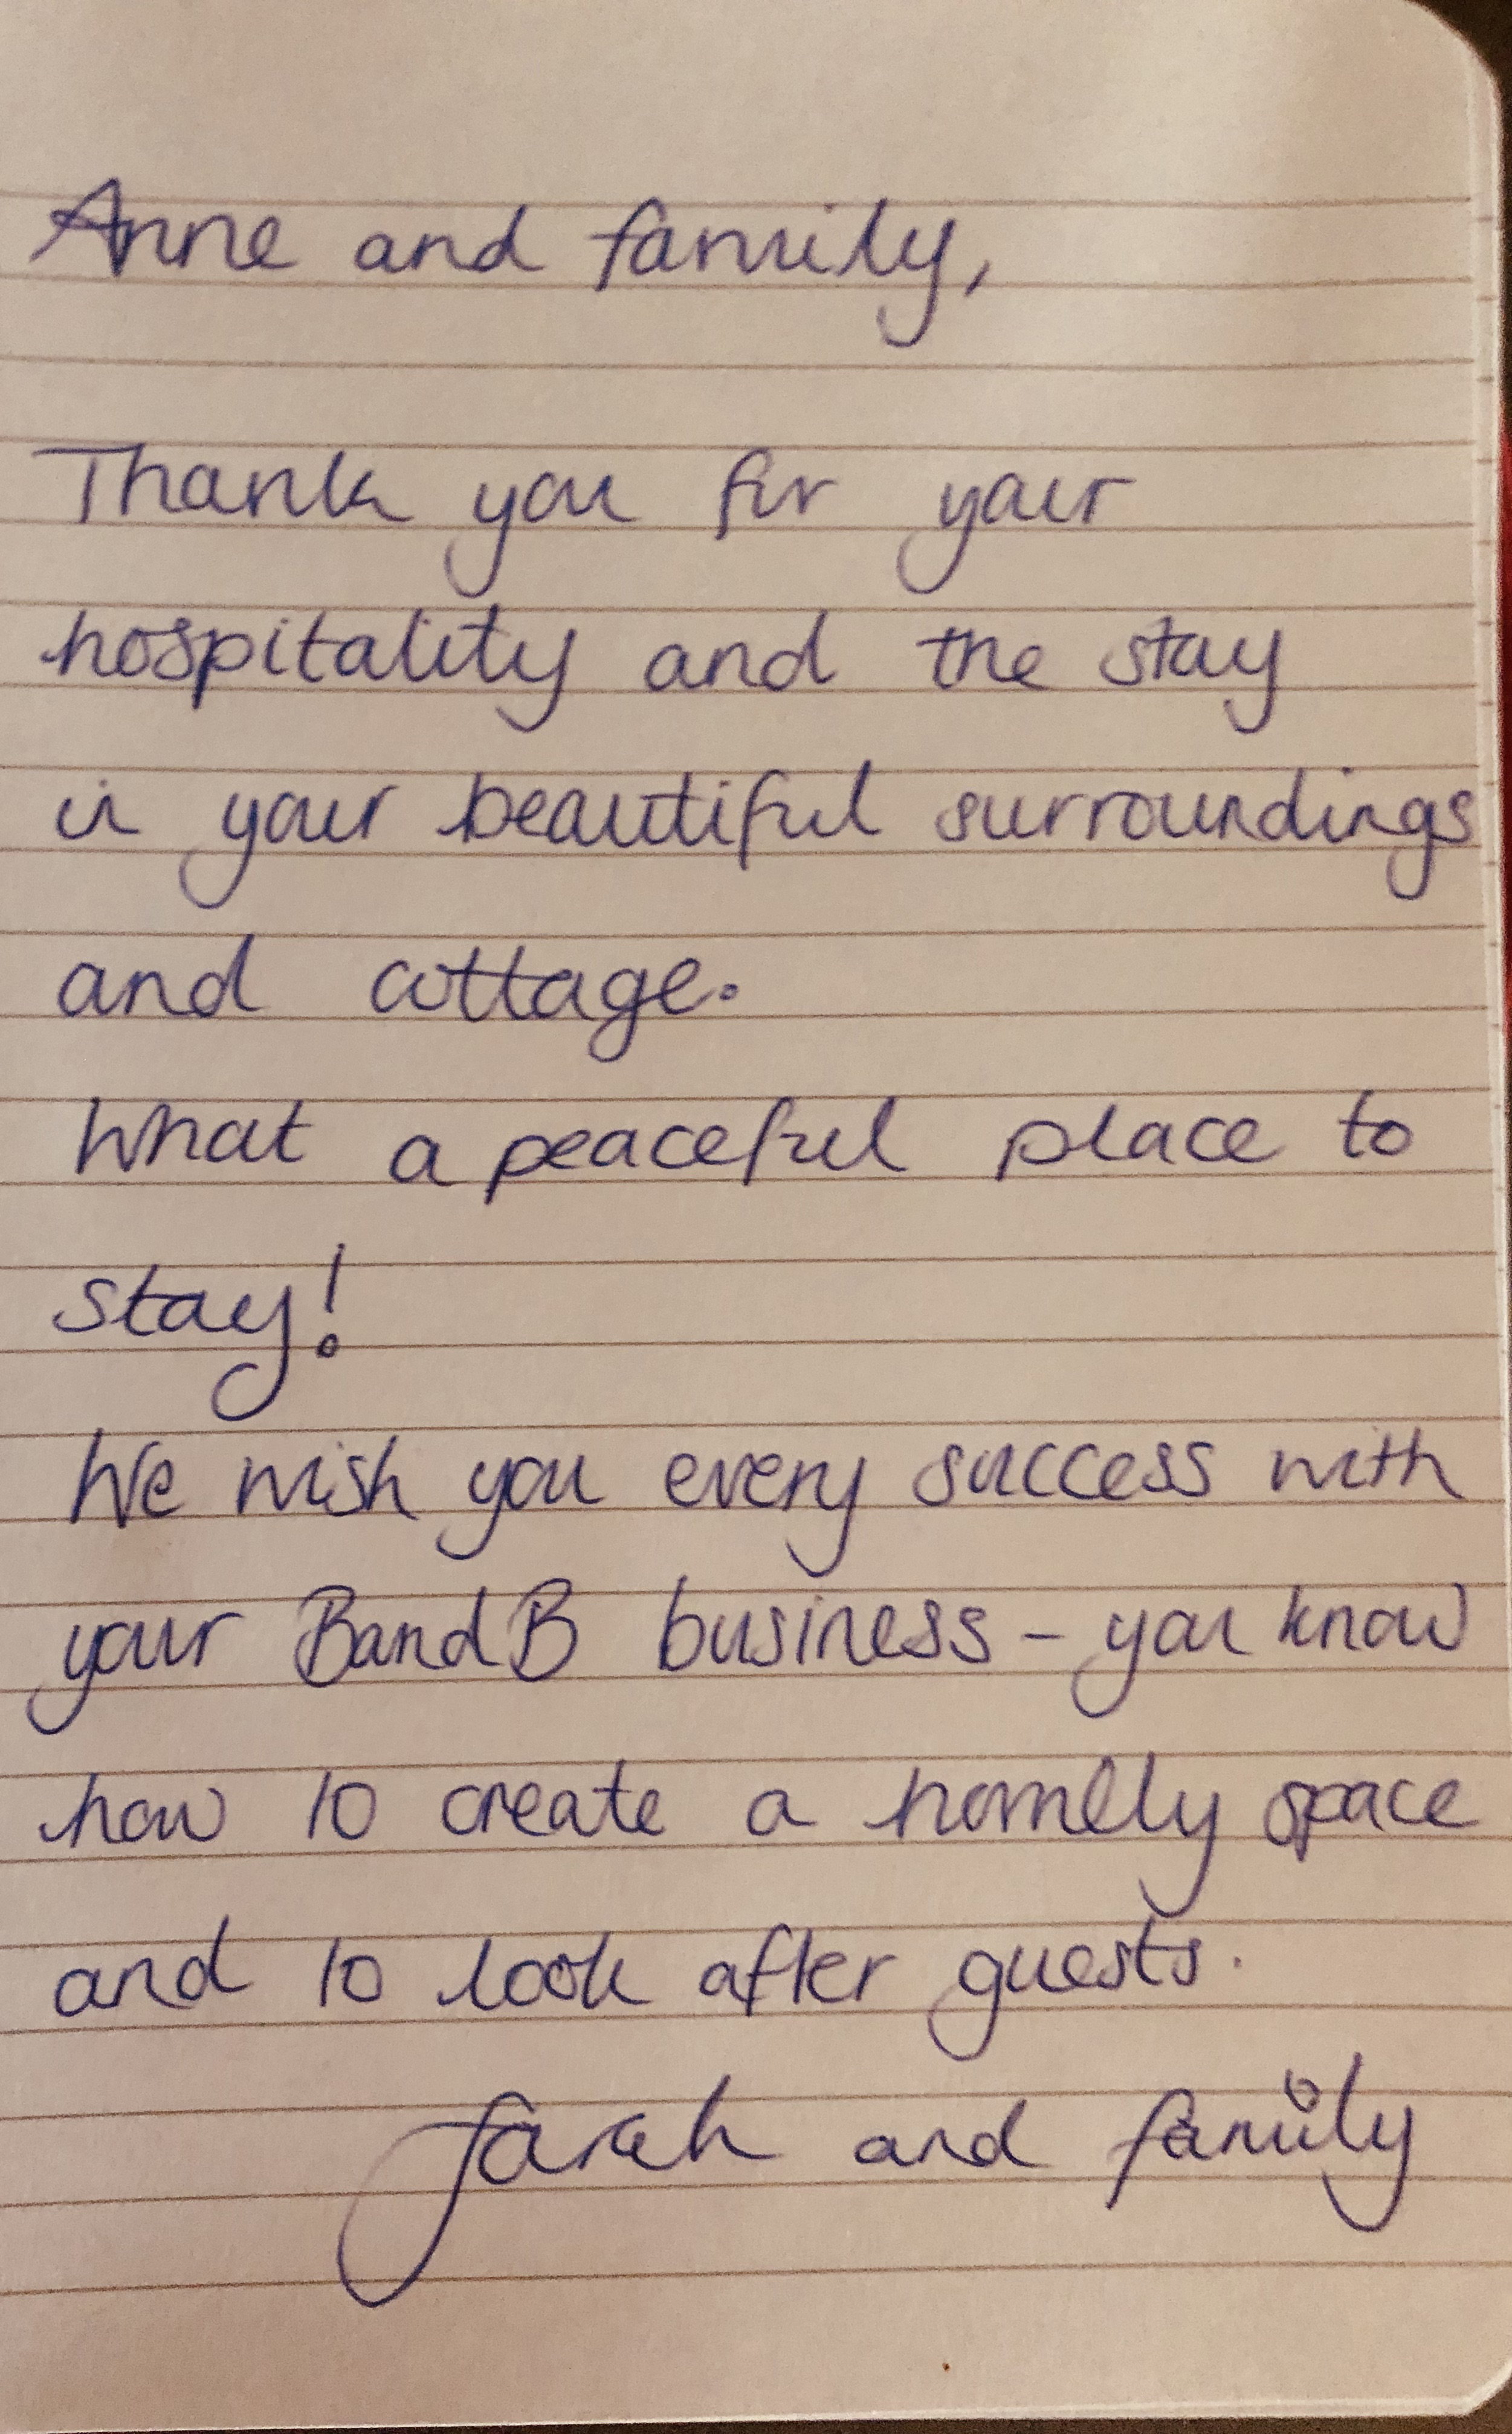 Anne and family,
Thank you for your
hospitality and the stay
in your beautiful surroundings
and cottage.
What a peaceful place to
stay!
We wish you every success with
your BandB business - you know
how to create a homely space
and to look after guests.
Sarah and family